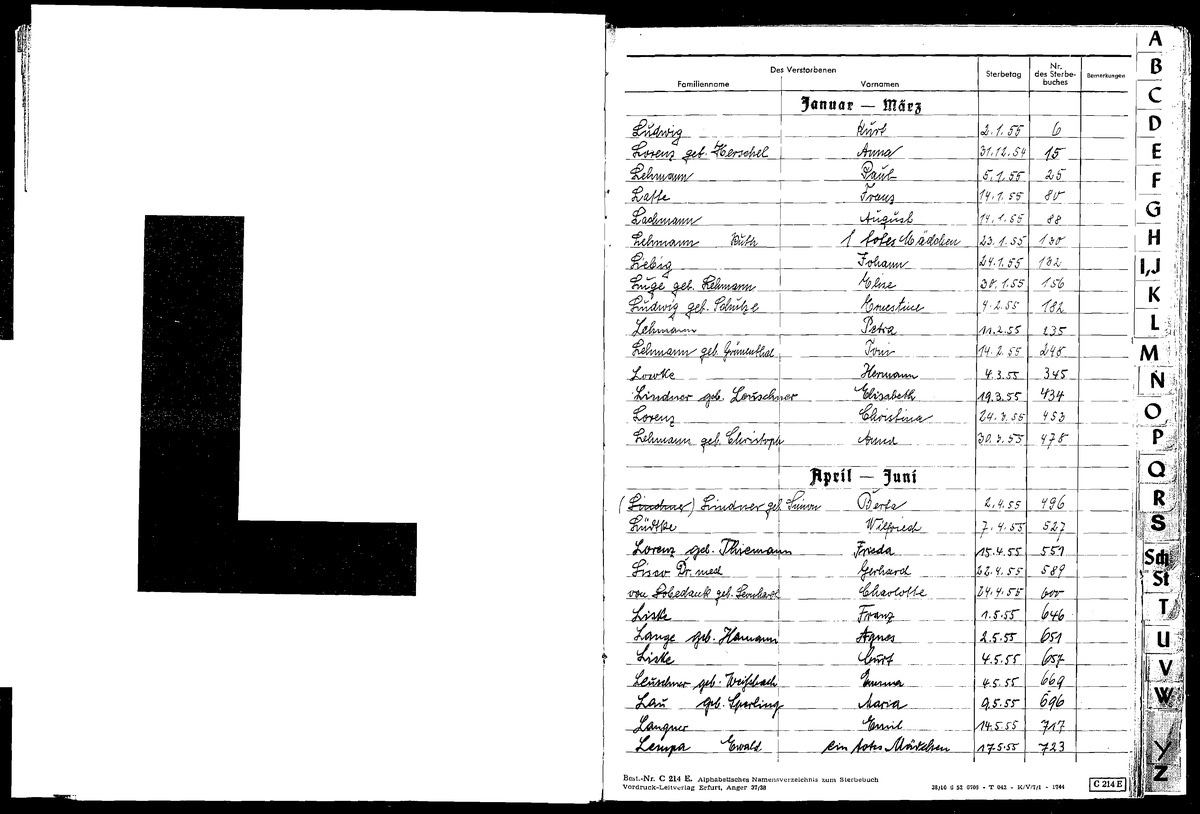 L
Des Verstorbenen
Familienname Vornamen Sterbetag Nr. des Sterbebuches Bemerkungen
Januar — März
Ludwig Kurt 2.1.55 6
Lorenz geb. Herschel Anna 31.12.54 15
Lehmann Paul 5.1.55 25
Laste Franz 14.1.55 80
Lachmann August 14.1.55 88
Lehmann Ruth 1 totes Mädchen 23.1.55 130
Lebig Johann 24.1.55 132
Luge geb. Lehmann Else 30.1.55 156
Ludwig geb. Schütze Ernestine 4.2.55 182
Lehmann Petra 11.2.55 235
Lehmann geb. Grünenthal Toni 14.2.55 248
Lowke Hermann 4.3.55 345
Lindner geb. Leuschner Elisabeth 19.3.55 434
Lorenz Christina 24.3.55 453
Lehmann geb. Christoph Anna 30.3.55 478
April — Juni
(Lindner) Lindner geb. Simon Berta 2.4.55 496
Lüdtke Wilfried 7.4.55 527
Lorenz geb. Thiemann Frieda 15.4.55 551
Lisco Dr. med Gerhard 22.4.55 589
von Lobedank geb. Leonhardt Charlotte 24.4.55 600
Liske Franz 1.5.55 646
Lange geb. Hamann Agnes 2.5.55 651
Liske Curt 4.5.55 657
Leuschner geb. Weißbach Emma 4.5.55 669
Lau geb. Sperling Maria 9.5.55 696
Langner Emil 14.5.55 717
Lempa Ewald ein totes Mädchen 17.5.55 723
Best.-Nr. C 214 E. Alphabetisches Namensverzeichnis zum Sterbebuch
Vordruck-Leitverlag Erfurt, Anger 37/38 38/10 6 52 6706 - T 042 - K/V/7/1 - 1744 C 214 E
A
B
C
D
E
F
G
H
I,J
K
L
M
N
O
P
Q
R
S
Sch
St
T
U
V
W
Y
Z